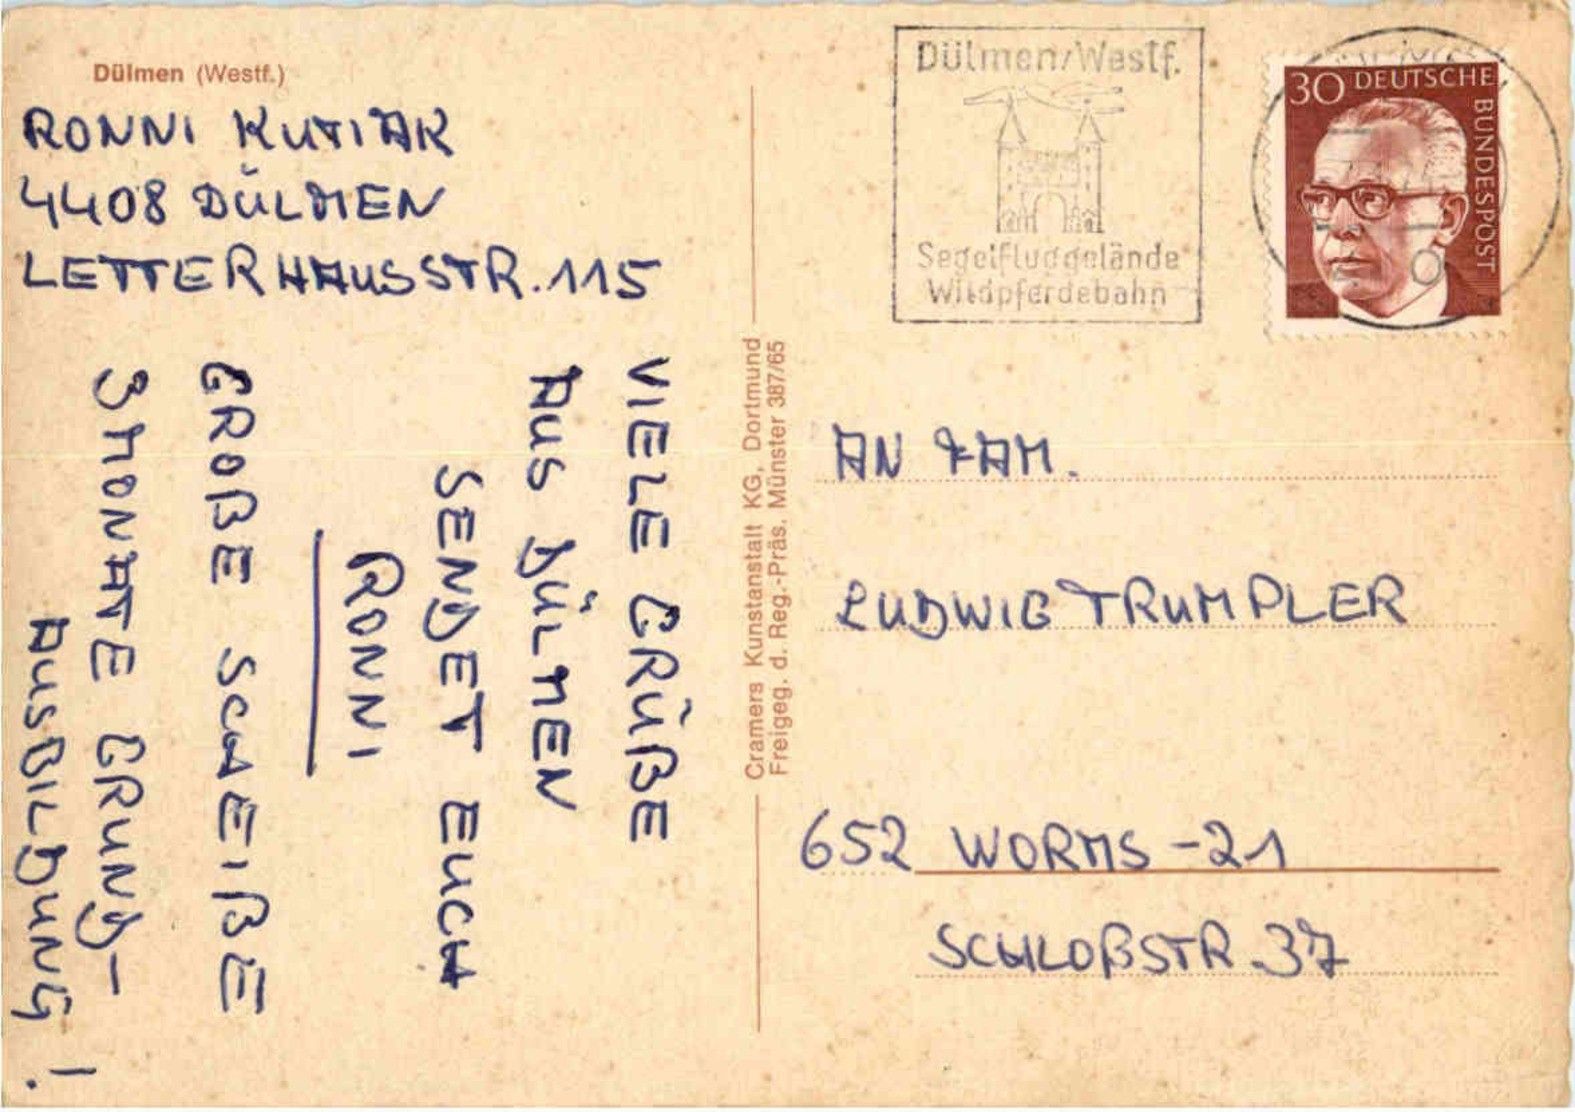 Dülmen (Westf.)
RONNI KUTIAK
4408 DÜLMEN
LETTERHAUSSTR. 115
VIELE GRÜßE
AUS DÜLMEN
SENDET EUCH
RONNI
GROßE SCHEIßE
3 MONATE GRUND-
AUSBILDUNG !
Cramers Kunstanstalt KG, Dortmund
Freigeg. d. Reg.-Präs. Münster 387/65
Dülmen/Westf.
Segelfluggelände
Wildpferdebahn
30 DEUTSCHE BUNDESPOST
AN FAM.
LUDWIG TRUMPLER
652 WORMS-21
SCHLOßSTR. 37